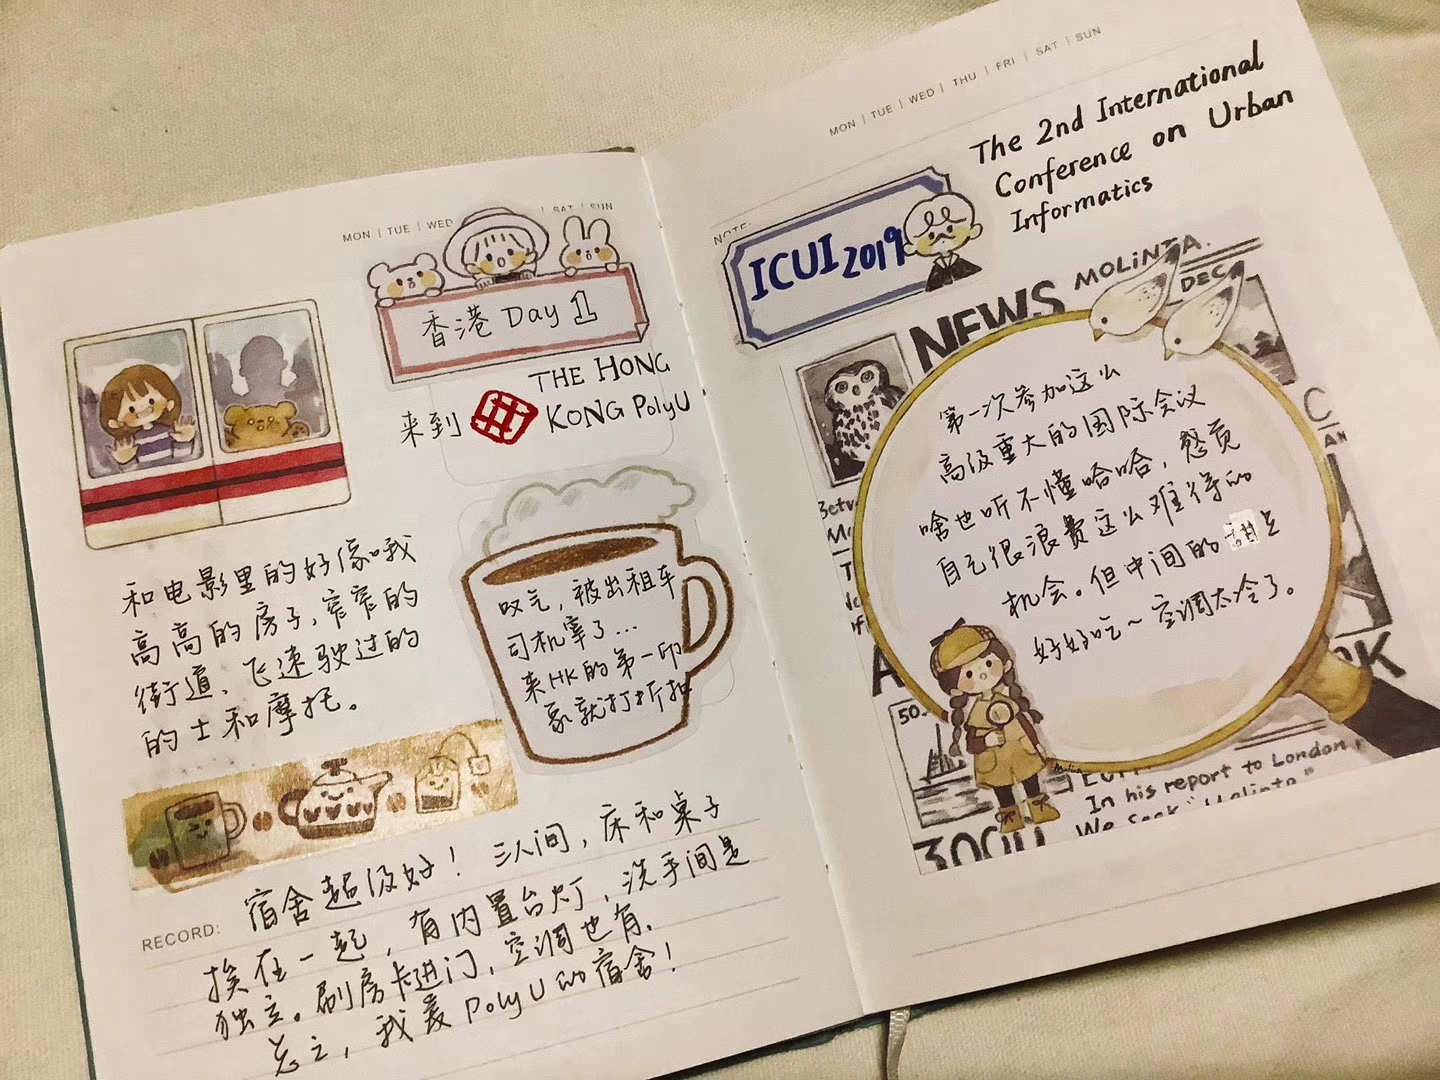 MON | TUE | WED
SAT | SUN
香港 Day 1
来到
THE HONG
KONG PolyU
和电影里的好像哦
高高的房子,窄窄的
街道、飞速驶过的
的士和摩托。
叹气,被出租车
司机宰了...
来HK的第一印
象就打折扣
宿舍超级好! 三人间,床和桌子
RECORD:
挨在一起,有内置台灯,洗手间是
独立。刷房卡进门,空调也有.
总之,我爱PolyU的宿舍!
MON | TUE | WED | THU | FRI | SAT | SUN
The 2nd International
Conference on Urban
Informatics
NOTE:
ICUI 2019
NEWS
MOLiNTA.
DEC.
第一次参加这么
高级重大的国际会议
啥也听不懂哈哈,感觉
自己很浪费这么难得的
机会。但中间的甜点
好好吃~空调太冷了。
50.
In his report to London,
We seek
3000